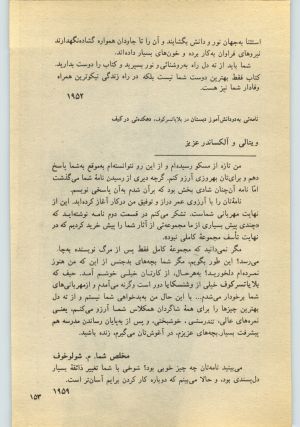 استثنا به‌جهان نور و دانش بگشایند و آن را تا جاودان همواره گشاده‌نگهدارند
نیروهای فراوان به‌کار برده و خون‌های بسیار داده‌اند.
شما باید از ته دل راه به‌روشنائی و نور بسپرید و کتاب را دوست بدارید.
کتاب فقط بهترین دوست شما نیست بلکه در راه زندگی نیکوترین همراه
وفادار شما نیز هست.
۱۹۵۲
نامه‌ئی به‌دو دانش‌آموز دبستان در بلایانسرکوف، دهکده‌ئی در کیف
ویتالی و آلکساندر عزیز
من تازه از مسکو رسیده‌ام و از این رو نتوانسته‌ام به‌موقع به‌شما پاسخ
دهم و برای‌تان بهروزی آرزو کنم. گرچه دیری از رسیدن نامهٔ شما می‌گذشت
امّا نامه آن‌چنان شادی بخش بود که برآن شدم به‌آن پاسخی نویسم.
نامه‌تان را با آرزوی عمر دراز و توفیق من درکار آغاز کرده‌اید. این از
نهایت مهربانی شماست. تشکر می‌کنم در قسمت دوم نامه نوشته‌اید که
«چندی پیش بسیاری از ما مجموعه‌ئی از آثار شما را پیش خرید کردیم که در
نهایت تأسف مجموعهٔ کاملی نبود».
مگر نمی‌دانید که مجموعهٔ کامل فقط پس از مرگ نویسنده به‌چاپ
می‌رسد؟ این طور بگویم، مگر شما بچه‌های بدجنس از این که من هنوز
نمرده‌ام دلخورید؟ به‌هرحال، از کارتان خیلی خوشم آمد. حیف که
بلایانسرکوف خیلی از وشنسکایا دور است وگرنه می‌آمدم و از مهربانی‌های
شما برخوردار می‌شدم... با این حال من به‌بدخواهی شما نیستم و از ته دل
بهترین چیزها را برای همهٔ شاگردان همکلاس شما آرزو می‌کنم، یعنی
نمره‌های عالی، تندرستی، خوشبختی، و پس از به‌پایان رساندن مدرسه هم
پیشرفت بسیار. بچه‌های عزیزم، در آغوش‌تان می‌گیرم، زنده باشید.
مخلص شما. م. شولوخوف
می‌بینید نامه‌تان چه چیز خوبی بود؟ شوخی با شما تغییر ذائقهٔ بسیار
دل‌پسندی بود، و حالا می‌بینم که دوباره کار کردن برایم آسان‌تر است.
۱۹۵۹
۱۵۳